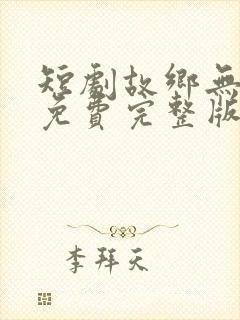 短劇故鄉無
免費完整版
李拜天